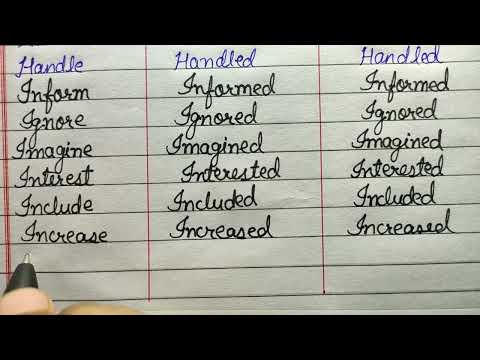 Handle Handled Handled
Inform Informed Informed
Ignore Ignored Ignored
Imagine Imagined Imagined
Interest Interested Interested
Include Included Included
Increase Increased Increased